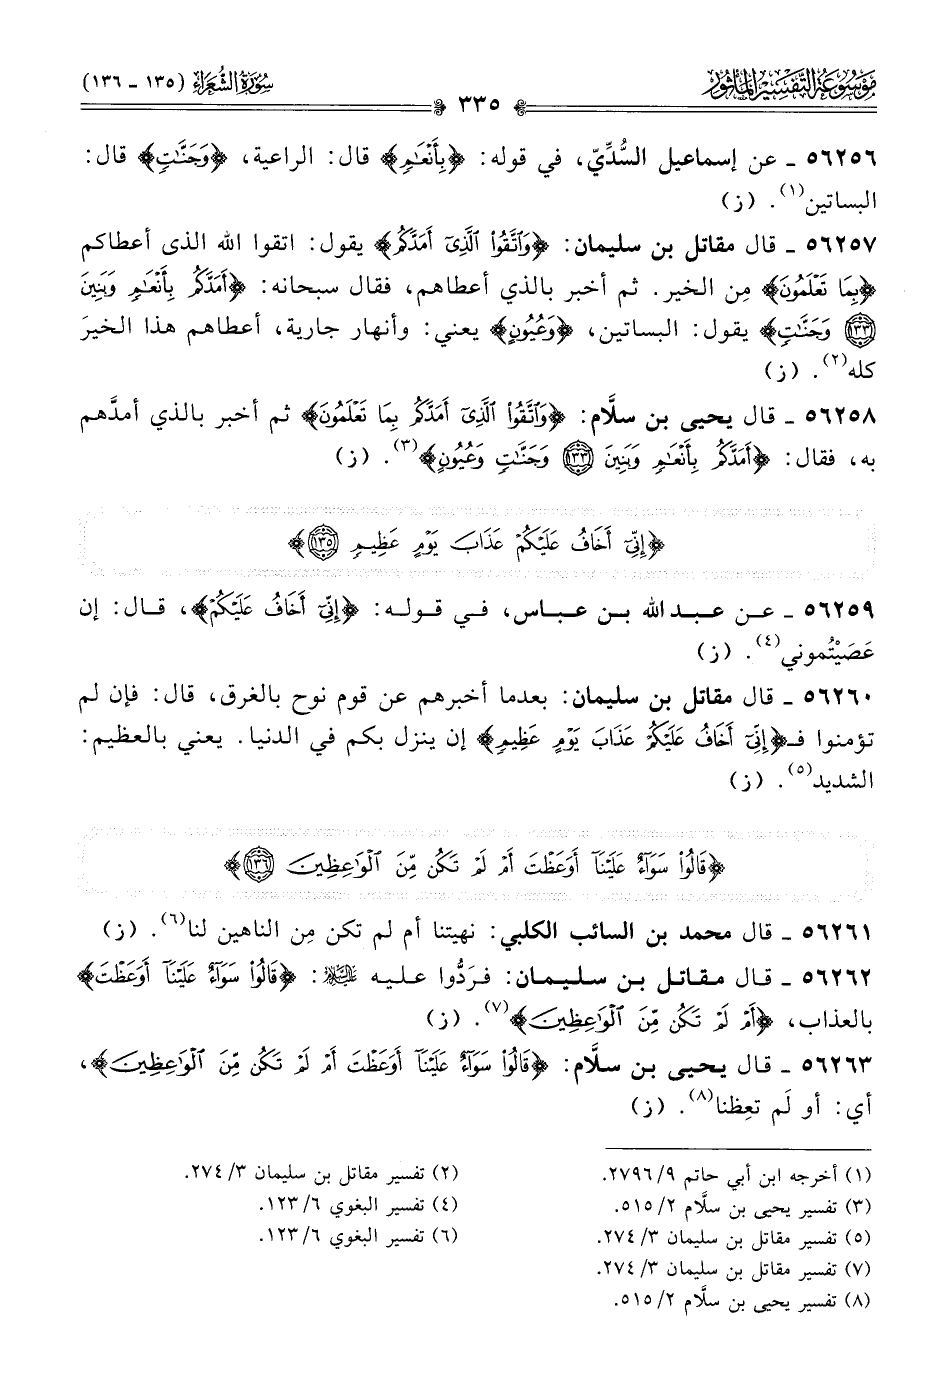 موسوعة التفسير المأثور
سورة الشعراء (١٣٥ - ١٣٦)
٣٣٥
٥٦٢٥٦ - عن إسماعيل السُّدِّيّ، في قوله: ﴿بِأَنْعَامٍ﴾ قال: الراعية، ﴿وَجَنَّاتٍ﴾ قال:
البساتين(١). (ز)
٥٦٢٥٧ - قال مقاتل بن سليمان: ﴿وَاتَّقُوا الَّذِي أَمَدَّكُمْ﴾ يقول: اتقوا الله الذى أعطاكم
﴿بِمَا تَعْلَمُونَ﴾ مِن الخير. ثم أخبر بالذي أعطاهم، فقال سبحانه: ﴿أَمَدَّكُمْ بِأَنْعَامٍ وَبَنِينَ
(١٣٣) وَجَنَّاتٍ﴾ يقول: البساتين، ﴿وَعُيُونٍ﴾ يعني: وأنهار جارية، أعطاهم هذا الخيرَ
كله(٢). (ز)
٥٦٢٥٨ - قال يحيى بن سلَّام: ﴿وَاتَّقُوا الَّذِي أَمَدَّكُمْ بِمَا تَعْلَمُونَ﴾ ثم أخبر بالذي أمدَّهم
به، فقال: ﴿أَمَدَّكُمْ بِأَنْعَامٍ وَبَنِينَ (١٣٣) وَجَنَّاتٍ وَعُيُونٍ﴾(٣). (ز)
﴿إِنِّي أَخَافُ عَلَيْكُمْ عَذَابَ يَوْمٍ عَظِيمٍ (١٣٥)﴾
٥٦٢٥٩ - عن عبد الله بن عباس، في قوله: ﴿إِنِّي أَخَافُ عَلَيْكُمْ﴾، قال: إن
عَصَيْتُموني(٤). (ز)
٥٦٢٦٠ - قال مقاتل بن سليمان: بعدما أخبرهم عن قوم نوح بالغرق، قال: فإن لم
تؤمنوا فـ﴿إِنِّي أَخَافُ عَلَيْكُمْ عَذَابَ يَوْمٍ عَظِيمٍ﴾ إن ينزل بكم في الدنيا. يعني بالعظيم:
الشديد(٥). (ز)
﴿قَالُوا سَوَاءٌ عَلَيْنَا أَوَعَظْتَ أَمْ لَمْ تَكُن مِّنَ الْوَاعِظِينَ (١٣٦)﴾
٥٦٢٦١ - قال محمد بن السائب الكلبي: نهيتنا أم لم تكن مِن الناهين لنا(٦). (ز)
٥٦٢٦٢ - قال مقاتل بن سليمان: فردُّوا عليه عليه السلام: ﴿قَالُوا سَوَاءٌ عَلَيْنَا أَوَعَظْتَ﴾
بالعذاب، ﴿أَمْ لَمْ تَكُن مِّنَ الْوَاعِظِينَ﴾(٧). (ز)
٥٦٢٦٣ - قال يحيى بن سلَّام: ﴿قَالُوا سَوَاءٌ عَلَيْنَا أَوَعَظْتَ أَمْ لَمْ تَكُن مِّنَ الْوَاعِظِينَ﴾،
أي: أو لَم تعِظنا(٨). (ز)
(١) أخرجه ابن أبي حاتم ٩/ ٢٧٩٦.
(٢) تفسير مقاتل بن سليمان ٣/ ٢٧٤.
(٣) تفسير يحيى بن سلَّام ٢/ ٥١٥.
(٤) تفسير البغوي ٦/ ١٢٣.
(٥) تفسير مقاتل بن سليمان ٣/ ٢٧٤.
(٦) تفسير البغوي ٦/ ١٢٣.
(٧) تفسير مقاتل بن سليمان ٣/ ٢٧٤.
(٨) تفسير يحيى بن سلَّام ٢/ ٥١٥.